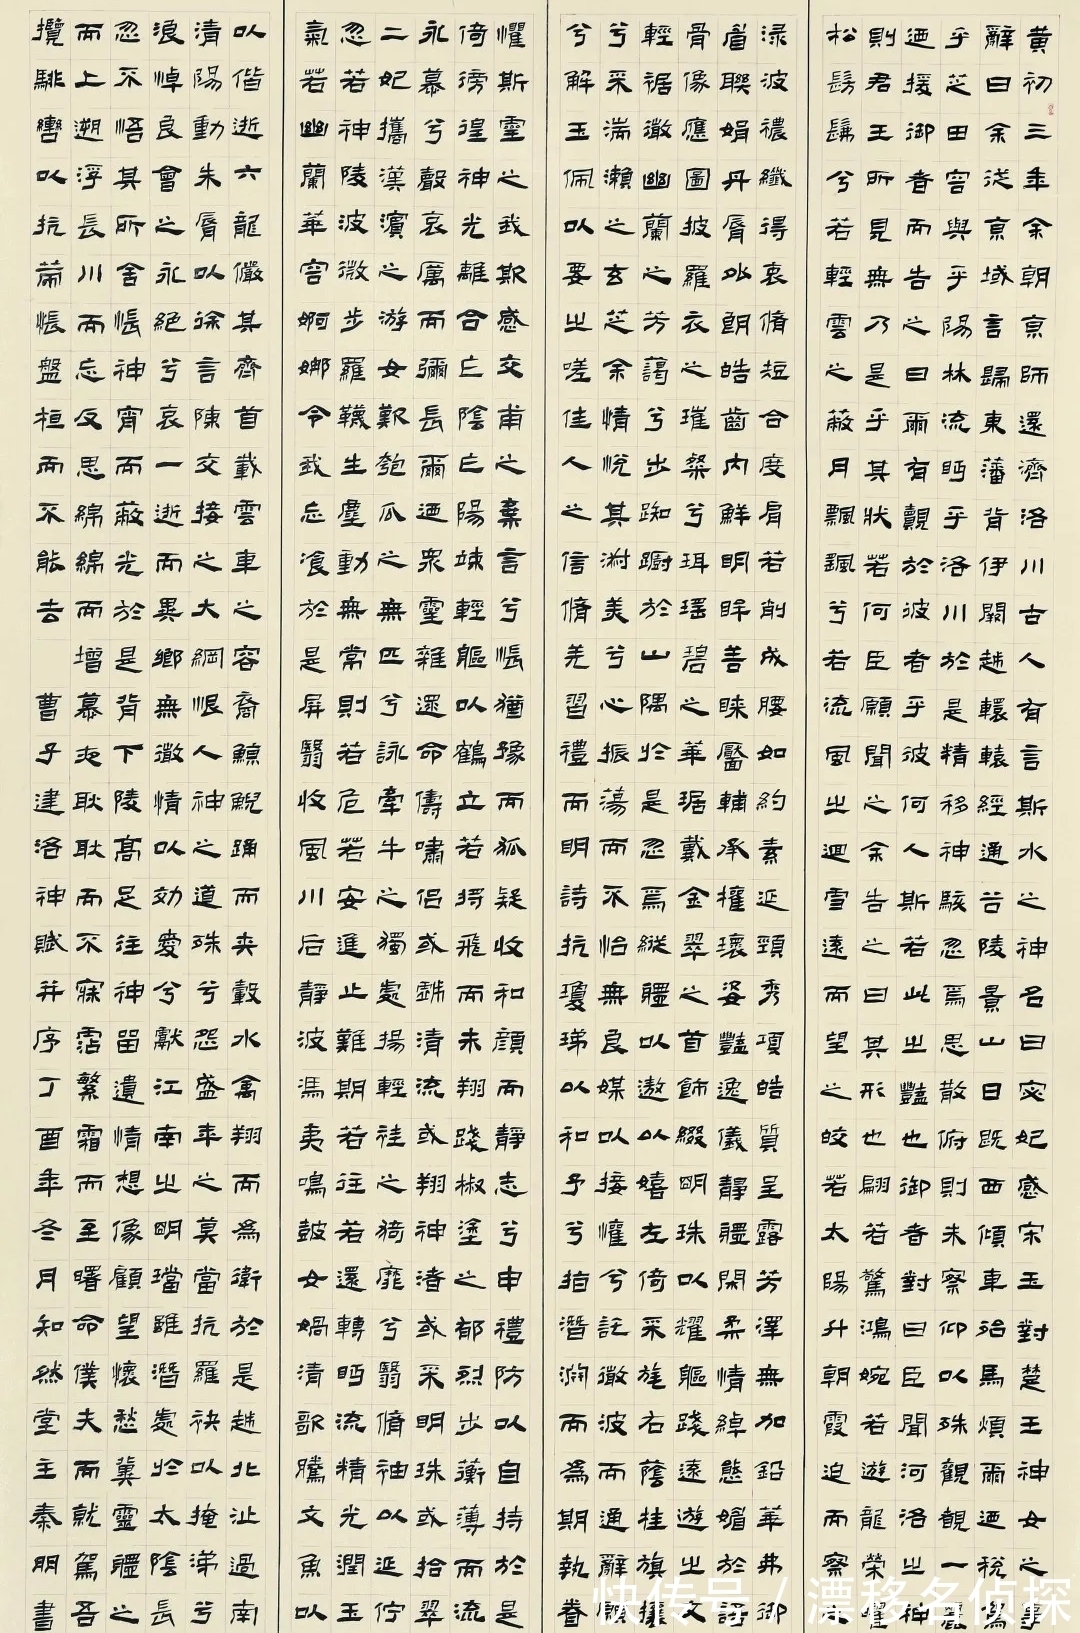 黄初三年余朝京師還濟洛川古人有言斯水之神名曰宓妃感宋玉對楚王神女之事
辭曰余從京域言歸東藩背伊闕越轘轅經通谷陵景山日既西傾車殆馬煩爾迺稅駕
乎芝田容與乎陽林流眄乎洛川於是精移神駭忽焉思散俯則未察仰以殊觀覩一麗
迺援御者而告之曰爾有覿於彼者乎彼何人斯若此之豔也御者對曰臣聞河洛之神
則君王所見無乃是乎其狀若何臣願聞之余告之曰其形也翩若驚鴻婉若遊龍榮曜
松髣髴兮若輕雲之蔽月飄颻兮若流風之迴雪遠而望之皎若太陽升朝霞迫而察之
淥波禯纖得衷脩短合度肩若削成腰如約素延頸秀項皓質呈露芳澤無加鉛華弗御
眉聯娟丹脣外朗皓齒內鮮明眸善睞靨輔承權瓌姿豔逸儀靜體閑柔情綽態媚於語
骨像應圖披羅衣之璀粲兮珥瑤碧之華琚戴金翠之首飾綴明珠以耀軀踐遠遊之文
輕裾微幽蘭之芳藹兮步踟躕於山隅於是忽焉縱體以遨以嬉左倚采旄右蔭桂旗攘
兮采湍瀨之玄芝余情悅其淑美兮心振蕩而不怡無良媒以接懽兮託微波而通辭願
兮解玉佩以要之嗟佳人之信脩羌習禮而明詩抗瓊珶以和予兮指潛淵而為期執眷
懼斯靈之我欺感交甫之棄言兮悵猶豫而狐疑收和顏而靜志兮申禮防以自持於是
倚徬徨神光離合乍陰乍陽竦輕軀以鶴立若將飛而未翔踐椒塗之郁烈步蘅薄而流
永慕兮聲哀厲而彌長爾迺眾靈雜遝命儔嘯侶或戲清流或翔神渚或采明珠或拾翠
二妃攜漢濱之游女歎匏瓜之無匹兮詠牽牛之獨處揚輕袿之猗靡兮翳脩袖以延佇
忽若神陵波微步羅韈生塵動無常則若危若安進止難期若往若還轉眄流精光潤玉
氣若幽蘭華容婀娜令我忘飡於是屏翳收風川后靜波馮夷鳴鼓女媧清歌騰文魚以
以偕逝六龍儼其齊首載雲車之容裔鯨鯢踊而夾轂水禽翔而為衛於是越北沚過南
清陽動朱脣以徐言陳交接之大綱恨人神之道殊兮怨盛年之莫當抗羅袂以掩涕兮
浪悼良會之永絕兮哀一逝而異鄉無微情以効愛兮獻江南之明璫雖潛處於太陰長
忽不悟其所舍悵神宵而蔽光於是背下陵高足往神留遺情想像顧望懷愁冀靈體之
而上遡浮長川而忘反思綿綿而增慕夜耿耿而不寐霑繁霜而至曙命僕夫而就駕吾
攬騑轡以抗策悵盤桓而不能去 曹子建洛神賦并序丁酉年冬月知然堂主秦朋書
快传号 / 漂移名侦探